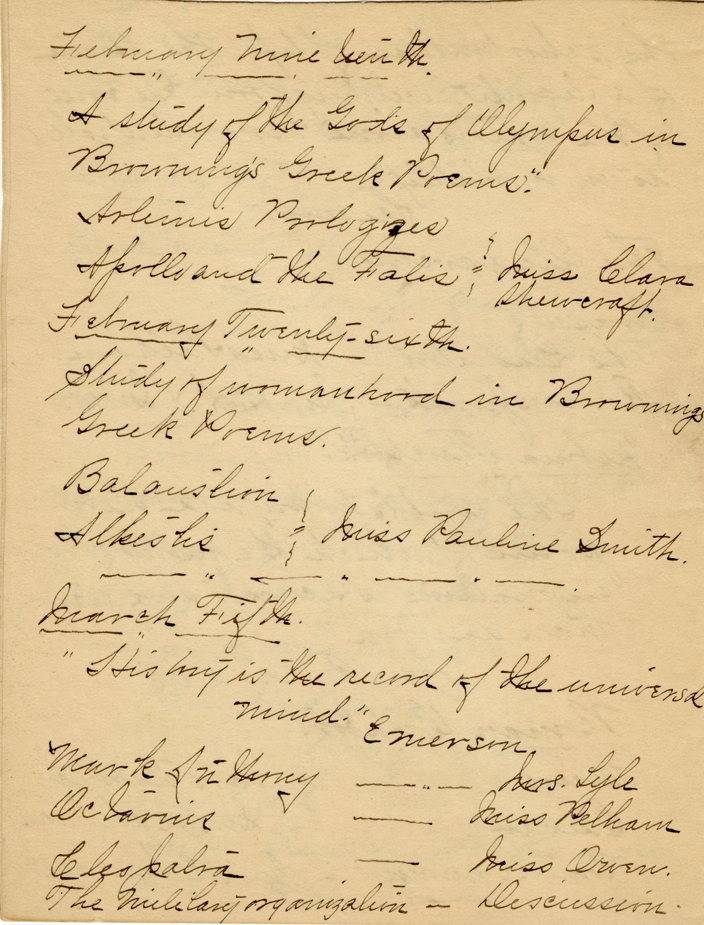 February Nineteenth.
A study of the Gods of Olympus in
Browning's Greek Poems."
Artemis Prologizes
Apollo and the Fates } Miss Clara
Shewcraft.
February Twenty-sixth.
Study of womanhood in Brownings
Greek Poems.
Balaustion
Alkestis } Miss Pauline Smith.
March Fifth.
"History is the record of the universal
mind." Emerson
Mark Anthony — " — Mrs. Lyle
Octavius — Miss Pelham
Cleopatra — Miss Owen.
The Military organization — Discussion.